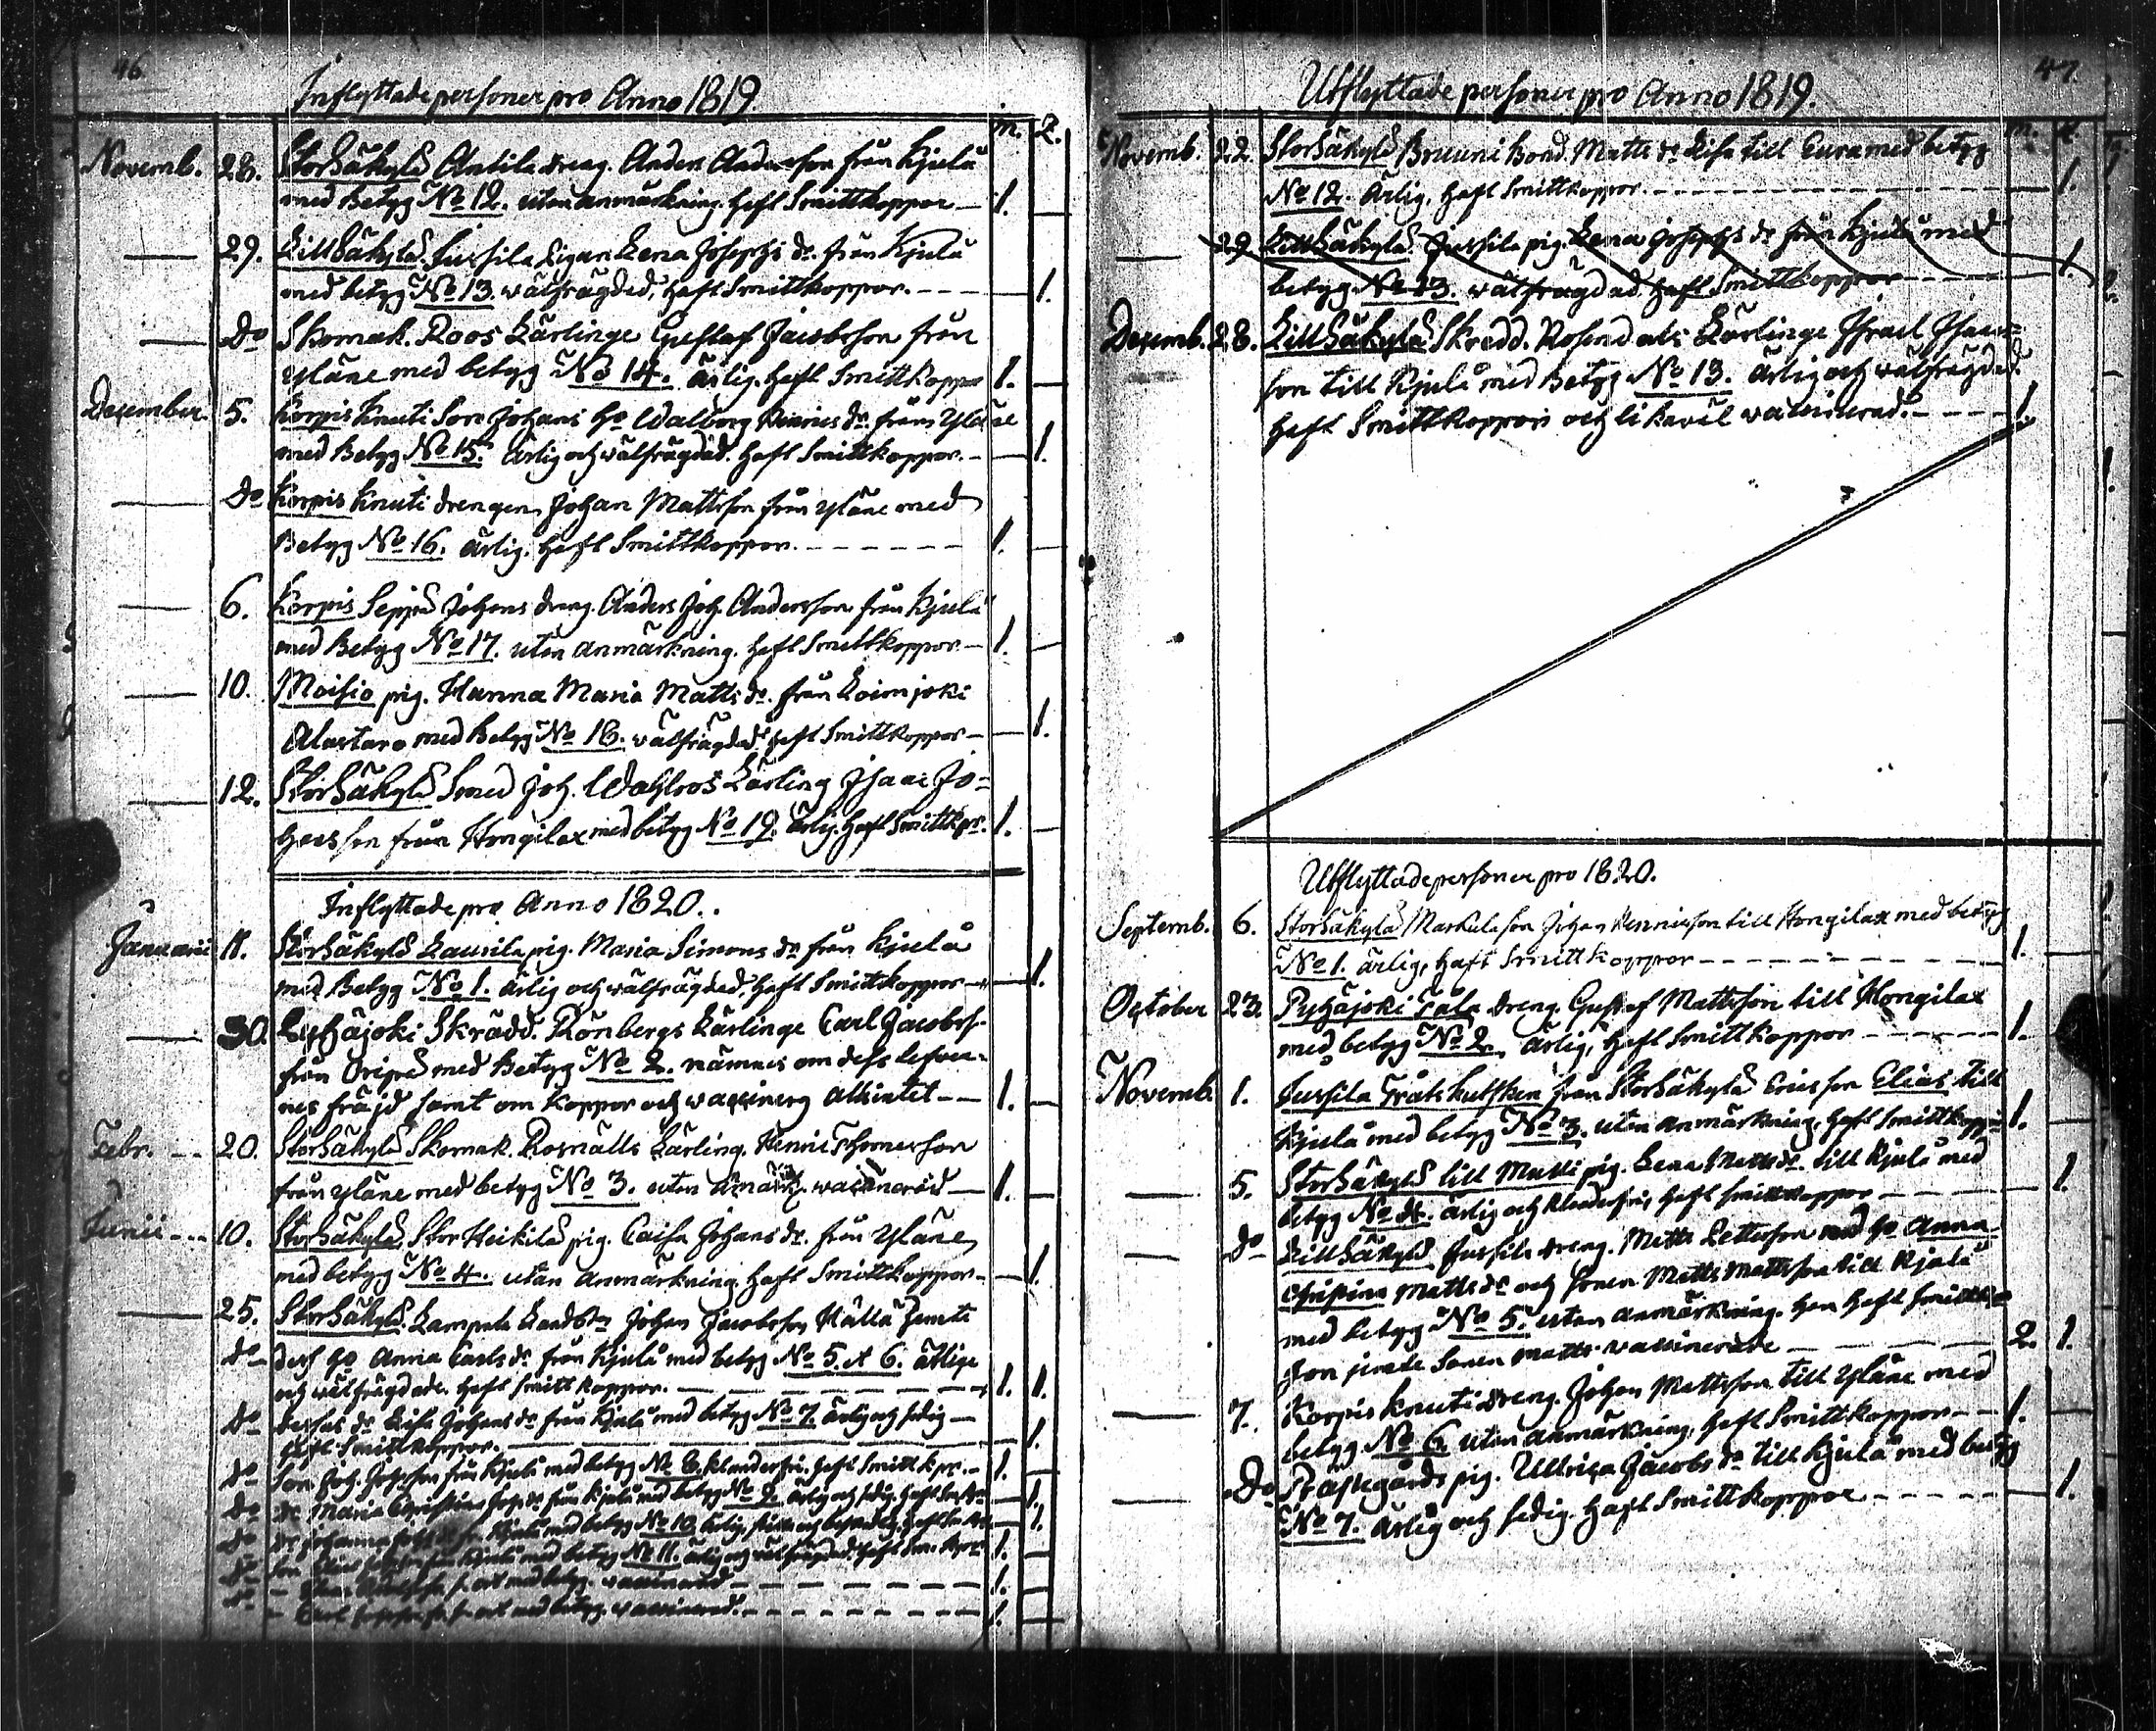 46
Inflyttade personer pro Anno 1819.
m. q.
Novemb. 28. StorSäkylä Antila dreng. Anders Andersson från Kjulå
med Betyg No 12. utan anmärkning. haft Smittkoppor — 1.
29. LillSäkylä Jussila Pigan Lena Josephs dr. från Kjulå
med betyg No 13. wälfrägdad, haft Smittkoppor. — 1.
Do Skomak. Roos Lärlinge Gustaf Jacobsson från
Yläne med betyg No 14. ärlig. haft Smittkoppor 1.
December. 5. Korpis Knuti Son Johans Ho Walborg Henrics dr. från Yläne
med Betyg No 15. ärlig och wälfrägdad. haft Smittkoppor. — 1.
Do Korpis Knuti drengen Johan Mattsson från Yläne med
Betyg No 16. ärlig. haft Smittkoppor. — 1.
6. Korpis Seppä Johans dreng. Anders Joh. Andersson från Kjulå
med Betyg No 17. utan anmärkning. haft Smittkoppor — 1.
10. Moisio pig. Hanna Maria Matts dr. från Loimjoki
Alastaro med Betyg No 18. wälfrägdad haft Smittkoppor — 1.
12. StorSäkylä Smed Joh. Wahlroos Lärling Isaac Jo-
hansson från Hongilax med betyg No 19. ärlig. haft Smittkpr. 1.
Inflyttade pro Anno 1820.
Januarii 18. StorSäkylä Laurila pig. Maria Simons dr från Kjulå
med Betyg No 1. ärlig och wälfrägdad, haft Smittkoppor — 1.
30. Pyhäjoki Skrädd. Rönbergs Lärlinge Carl Jacobss.
från Oripä med Betyg No 2. nämnes om dess lefver-
nes fräjd samt om Koppor och waccinerg allsintet — 1.
Febr. 20. StorSäkylä Skomak. Rosnälls Lärling. Henric Thomesson
från Yläne med betyg No 3. utan anmärk. waccinerad — 1.
Junii 10. StorSäkylä StorHeikilä pig. Caisa Johans dr. från Yläne
med betyg No 4. utan anmärkning. haft Smittkoppor — 1.
25. StorSäkylä Lampola Landbn Johan Jacobsson Hälla jemte
do dess ho Anna Carls dr från Kjulå med betyg No 5. et 6. ärlige
och wälfrägdade. haft Smittkoppor. — 1. 1.
do Dessas dr Lisa Johans dr från Kjulå med betyg No 7. ärlig och sedig —
haft Smittkoppor. — 1.
do Son Joh. Johsson från Kjulå med betyg No 8. klanderfri. haft Smittkpr. — 1.
do dr Maria Christina från Kjulå med betyg No 9. ärlig och sedig. haft 1.
do dr Johanna från Kjulå med betyg No 10. 1.
do Son från Kjulå med betyg No 11. ärlig och wälfrägdad. haft Sm. kpor 1.
do med betyg. waccinerad — 1.
do Carl med betyg. waccinerad. — 1.
47.
Utflyttade personer pro Anno 1819.
m. q.
Novemb. 22. StorSäkylä Bruuni Bond. Matts dr Lisa till Eura med betyg
No 12. ärlig, haft Smittkoppor. — 1.
29 LillSäkylä Jussila pig. Lena Josephs dr från Kjulå med
betyg No 13. wälfrägdad. haft Smittkoppor — 1.
Decemb. 28. LillSäkylä Skredd. Rosendals Lärlinge Israel Isaacs-
son till Kjulå med Betyg No 13. ärlig och wälfrägdad.
haft Smittkoppor och likawäl waccinerad. — 1.
Utflyttade personer pro 1820.
Septemb. 6. StorSäkylä Markula son Johan Henricsson till Hongilax med betyg
No 1. ärlig, haft Smittkoppor — 1.
October 23. Pyhäjoki Tala dreng. Gustaf Mattsson till Hongilax
med betyg No 2. ärlig, haft Smittkoppor — 1.
Novemb. 1. Jussila från StorSäkylä Ericsson Elias till
Kjulå med betyg No 3. utan anmärkning, haft Smittkoppor 1.
5. StorSäkylä till Matti pig. Lena Matts dr. till Kjulå med
betyg No 4. ärlig och klanderfri, haft Smittkoppor — 1.
do LillSäkylä Jussila dreng. Matts Pettersson med ho Anna
Christina Matts dr och sonen Matts Mattsson till Kjulå
med betyg No 5. utan anmärkning. han haft Smittko
hon jemte Sonen Matts waccinerade — 2. 1.
7. Korpis Knuti dreng. Johan Mattsson till Yläne med
betyg No 6. utan anmärkning, haft Smittkoppor — 1.
Do Prästegårds pig. Ullrica Jacobs dr till Kjulå med betyg
No 7. ärlig och sedig. haft Smittkoppor — 1.